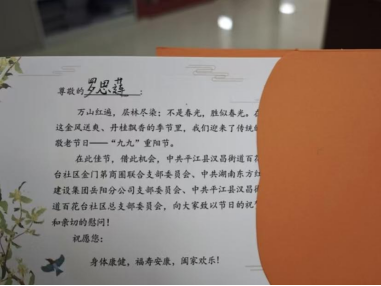 尊敬的罗思莲：
万山红遍，层林尽染；不是春光，胜似春光。在
这金风送爽、丹桂飘香的季节里，我们迎来了传统的
敬老节日——“九九”重阳节。
在此佳节，借此机会，中共平江县汉昌街道百花
台社区金门第商圈联合支部委员会、中共湖南东方红
建设集团岳阳分公司支部委员会、中共平江县汉昌街
道百花台社区总支部委员会，向大家致以节日的祝
和亲切的慰问！
祝愿您：
身体康健，福寿安康，阖家欢乐！